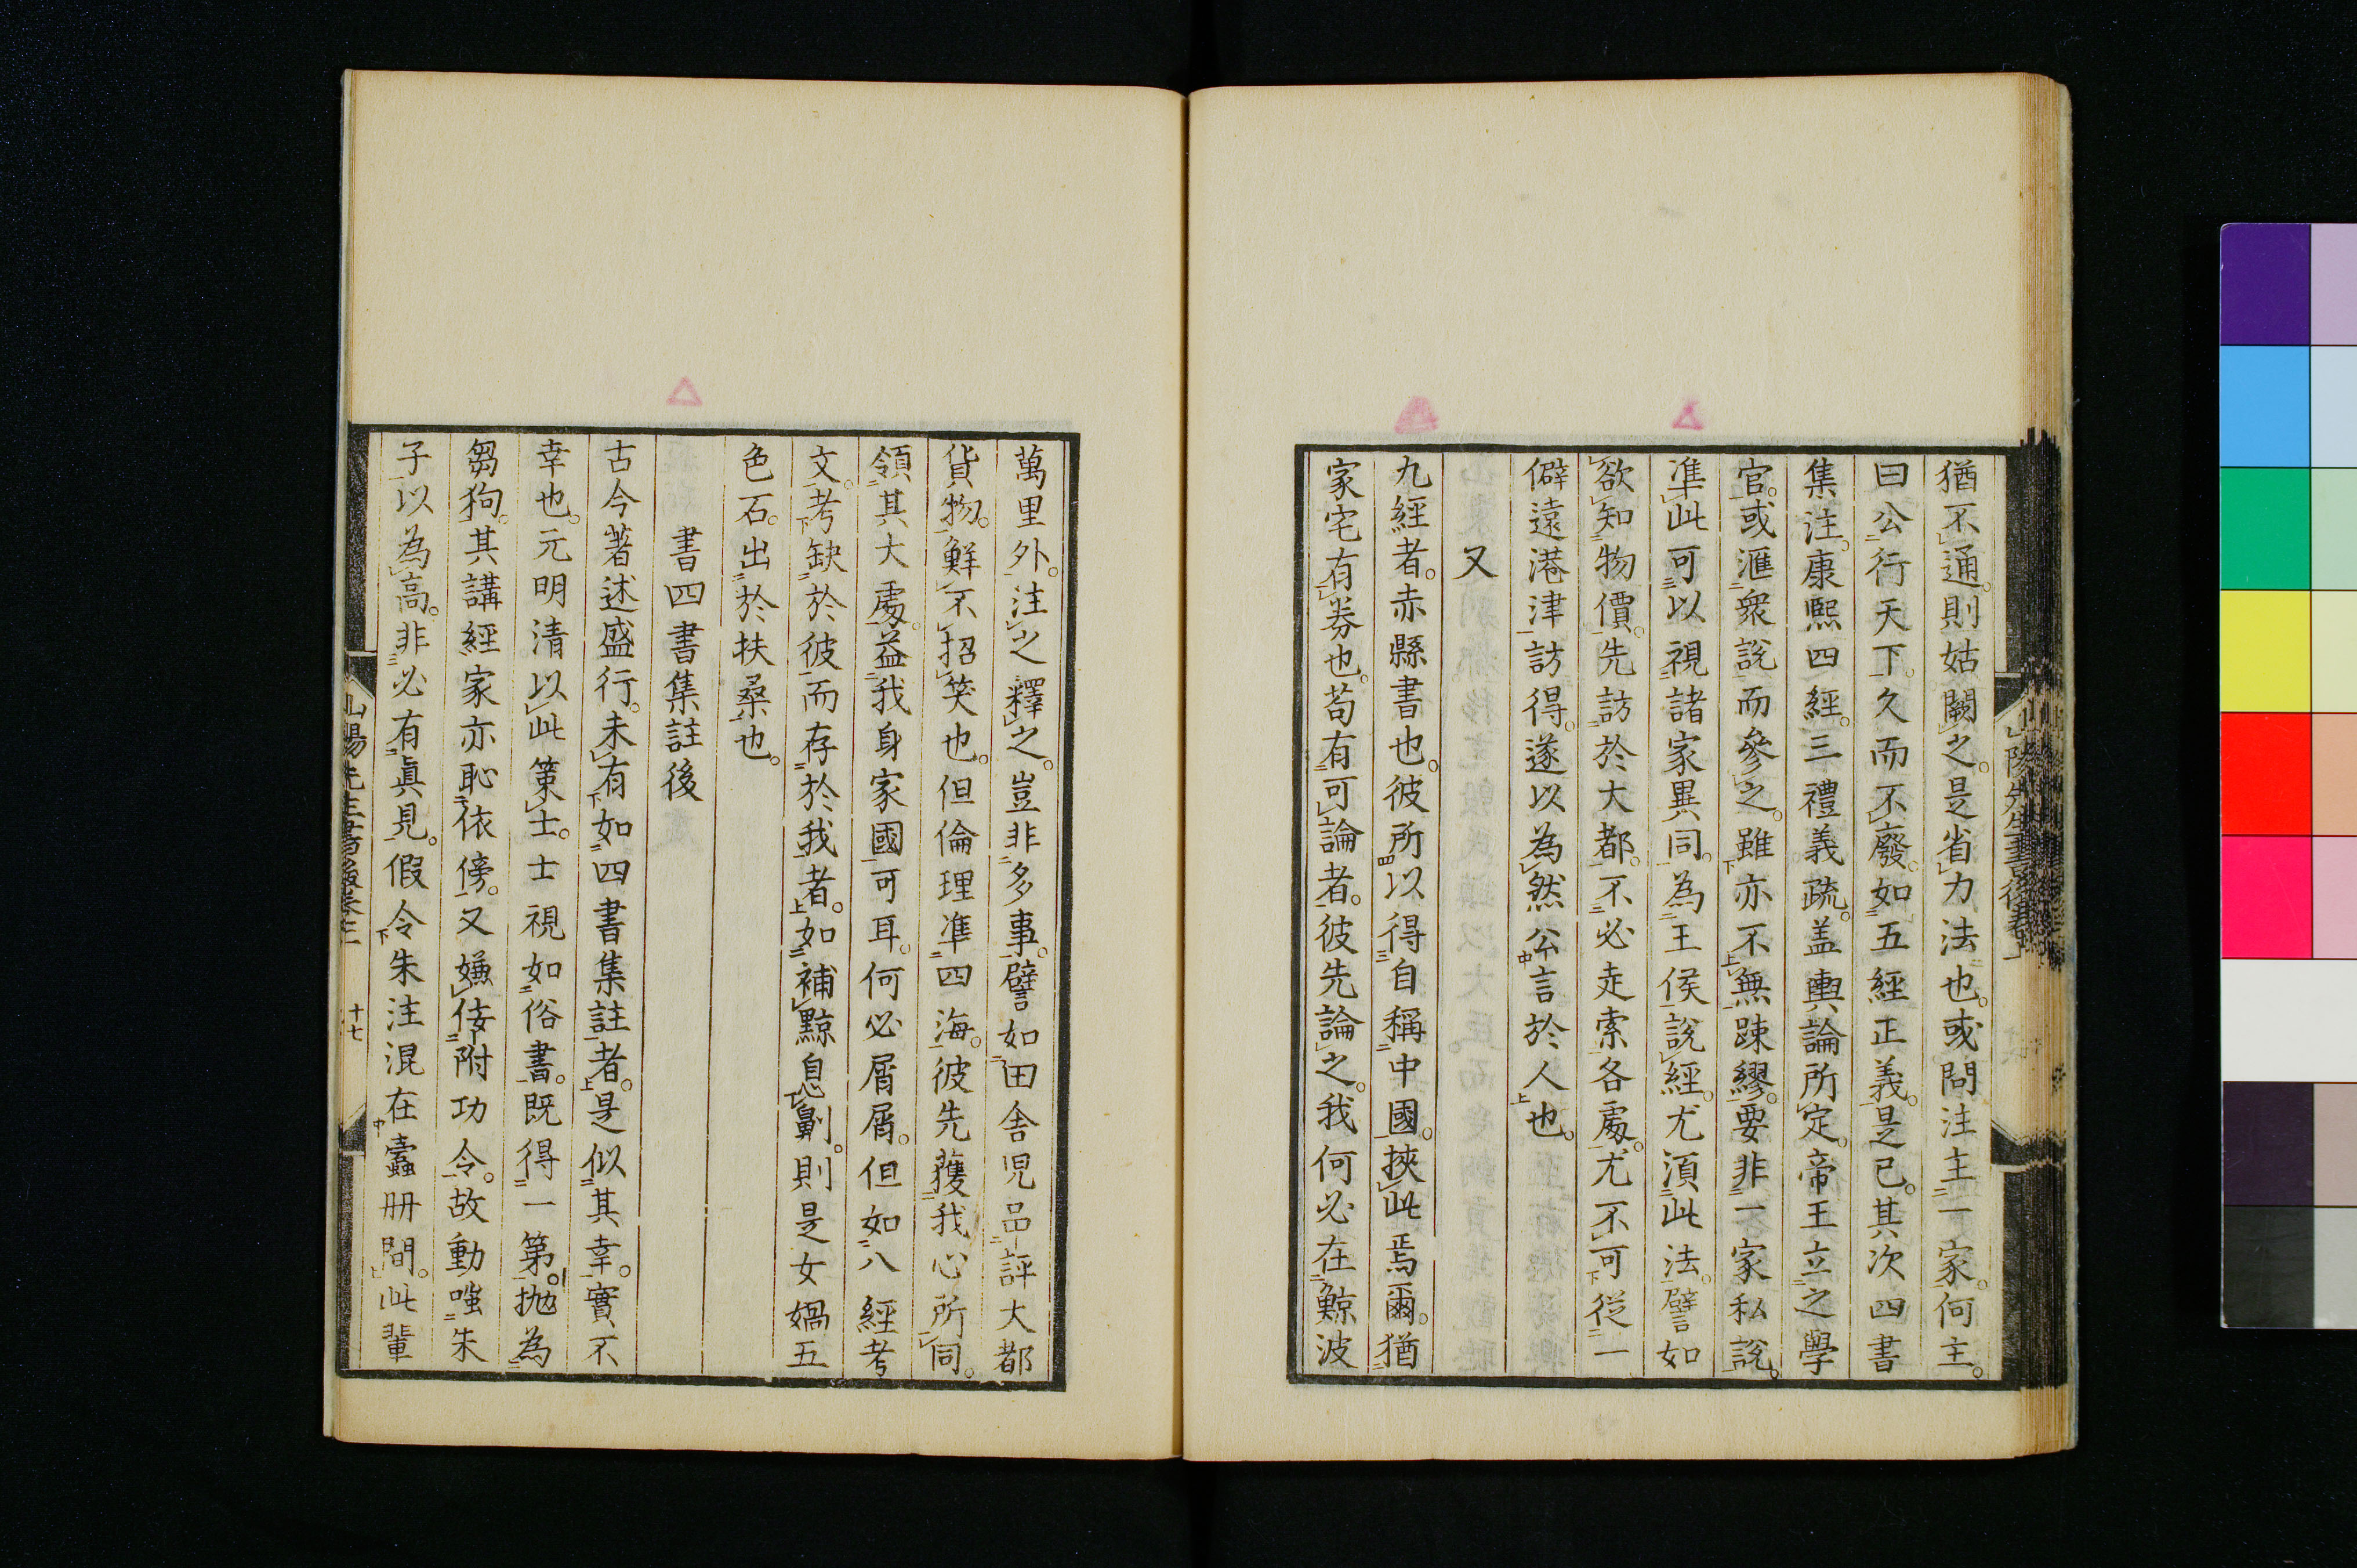 猶不通。則姑闕之。是省力法也。或問注主一家。何主。
曰公行天下。久而不廢。如五經正義。是已。其次四書
集注。康熙四經。三禮義疏。盖輿論所定。帝王立之學
官。或滙衆說而參之。雖亦不無踈繆。要非一家私說。
準此可以視諸家異同。為王侯說經。尤須此法。譬如
欲知物價。先訪於大都。不必走索各處。尤不可從一
僻遠港津訪得。遂以為然公言於人也。
又
九經者。赤縣書也。彼所以得自稱中國。挾此焉爾。猶
家宅有券也。苟有可論者。彼先論之。我何必在鯨波
萬里外。注之釋之。豈非多事。譬如田舍児品評大都
貨物。鮮不招笑也。但倫理準四海。彼先獲我心所同。
領其大處。益我身家國可耳。何必屑屑。但如八經考
文。考缺於彼而存於我者。如補黥息劓。則是女媧五
色石。出於扶桑也。
書四書集註後
古今著述盛行。未有如四書集註者。是似其幸。實不
幸也。元明清以此策士。士視如俗書。既得一第。抛為
芻狗。其講經家亦恥依傍。又嫌佞附功令。故動嗤朱
子以為高。非必有眞見。假令朱注混在蠹冊間。此輩
山陽先生書後卷上
十七